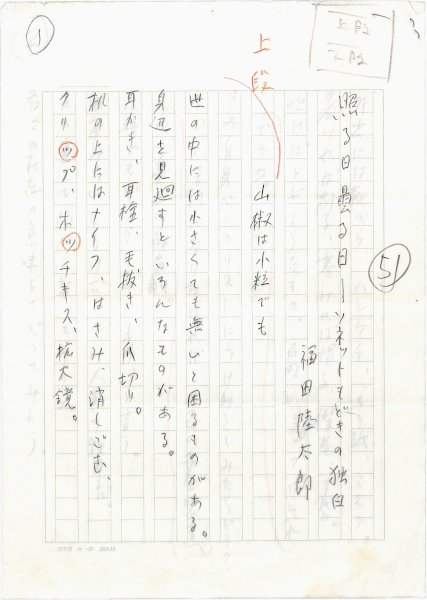 照る日曇る日―ソネットもどきの独白
51
福田陸太郎
上段
山椒は小粒でも
世の中には小さくても無いと困るものがある。
身辺を見廻すといろんなものがある。
耳かき、耳栓、毛抜き、爪切り。
机の上にはナイフ、はさみ、消しごむ、
クリップ、ホッチキス、拡大鏡。
1
上段
下段